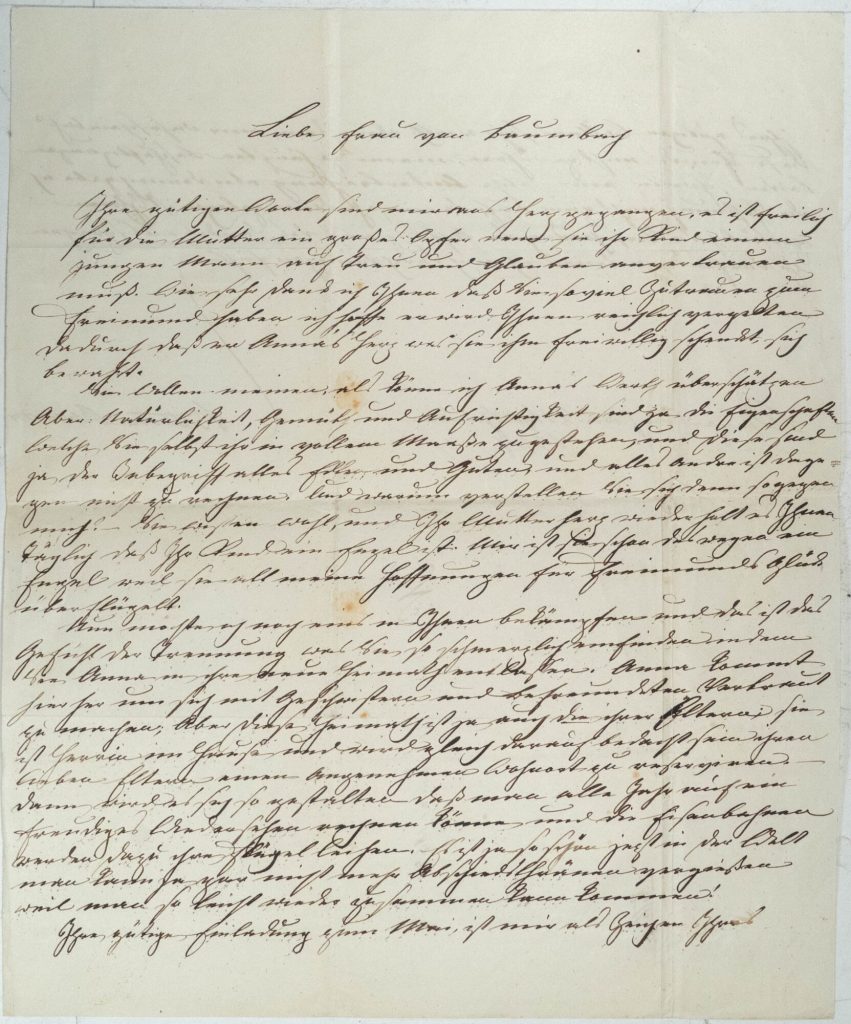 Liebe Frau von Baumbach
Ihre gütigen Worte sind mir ans Herz gegangen, es ist freilich
für die Mutter ein großes Opfer wenn sie ihr Kind einem
jungen Mann auf Treu und Glauben anvertrauen
muß. Wie sehr dank ich Ihnen daß Sie soviel Zutrauen zum
Freimund haben ich hoffe er wird Ihnen reichlich vergelten
dadurch daß er Anna's Herz was sie ihm freiwillig schenckt, sich
bewahrt.
Sie wollen meinen, als könne ich Annas Werth überschätzen
Aber: Natürlichkeit, Gemüth und Aufrichtigkeit, sind ja die Eigenschaften
welche Sie selbst ihr in vollem Maaße zugestehen, und diese sind
ja der Inbegriff alles Edlen und Guten, und alles andre ist dage=
gen nicht zu rechnen. Und warum verstellen Sie sich denn so gegen
mich? – Sie wissen wohl, und Ihr Mutterherz wiederholt es Ihnen
täglich daß Ihr Kind ein Engel ist. Mir ist sie schon deswegen ein
Engel weil sie all meine Hoffnungen für Freimunds Glück
überflügelt.
Nun möchte ich noch eins in Ihnen bekämpfen und das ist das
Gefühl der Trennung was Sie so schmerzlich empfinden indem
Sie Anna in ihre neue Heimath entlassen. Anna kommt
hierher um sich mit Geschwistern und Befreundeten Vertraut
zu machen; Aber diese Heimath ist ja auch die ihrer Eltern; sie
ist Herrin im Hause und wird gleich darauf bedacht sein ihren
lieben Eltern einen angenehmen Wohnort zu reserviren. –
dann wird es sich so gestalten daß man alle Jahr auf ein
freudiges Wiedersehen rechnen könne, und die Eisenbahnen
werden dazu ihre Flügel leihen. Es ist ja so schön jetzt in der Welt
man kann ja gar nicht mehr Abschiedsthränen vergießen
weil man so leicht wieder zusammen kann kommen!
Ihre gütige Einladung zum Mai, ist mir als Zeichen Ihres